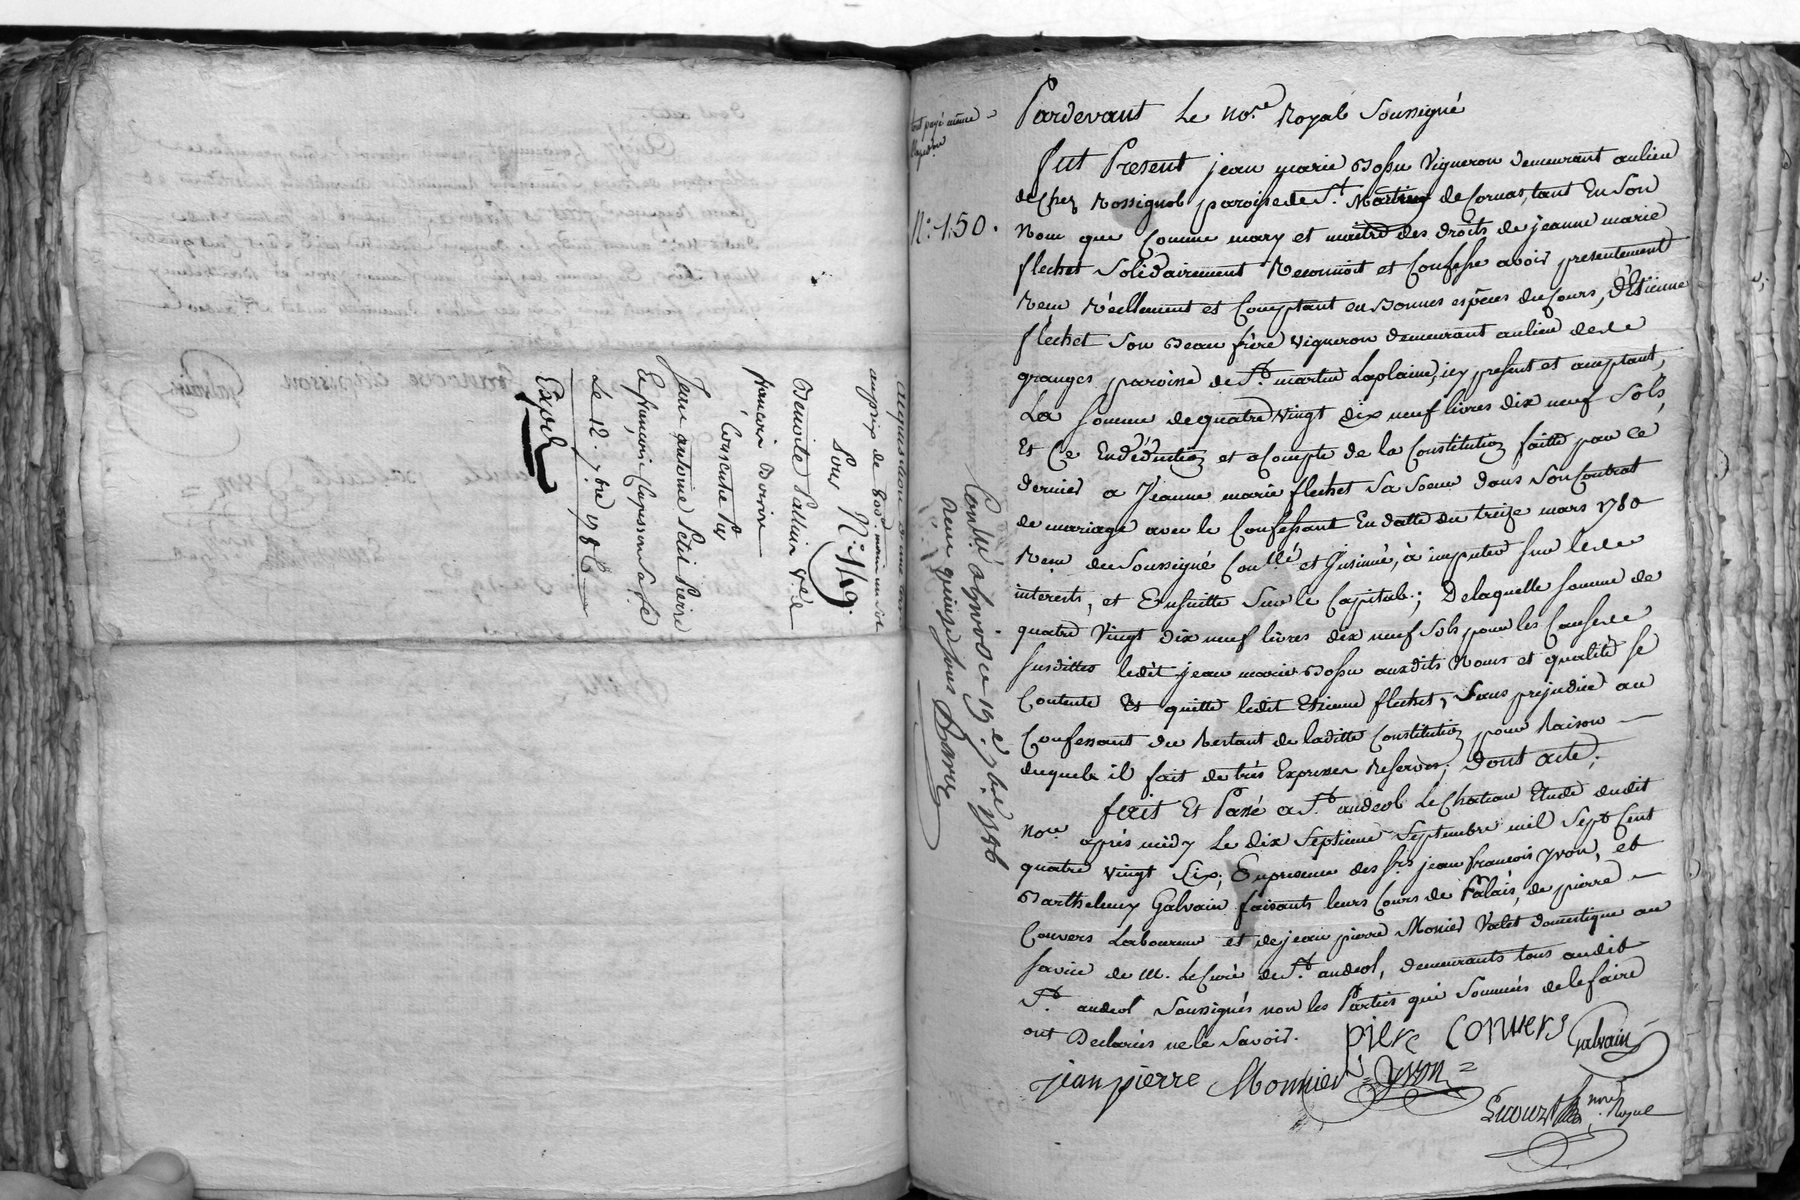 acquisition d'une
au prix de 800.# moins un sol
Sous N.º 149.
Benoite Vve
francoise
Consentie par
Jean antoine Petit Pierre
et françoise Chapesson Sa f.e
Le 12. 7bre 1786
Exped
tout payé
N.º 150.
Con.llé a Givors ce 19.e 7bre 1786
Reçu quinze sous
Pardevant Le no.re Royal Soussigné
fut Present jean marie Bossu Vigneron demeurant au lieu
de chez Rossignol paroisse de St. Martin de Cornas, tant En Son
Nom que Comme mary et maitre des droits de jeanne marie
flechet Solidairement Reconnoit et Confesse avoir presentement
Recu Réellement et Comptant en Bonnes espèces du Cours, D'Etienne
flechet Son Beau frère vigneron demeurant au lieu de
granges paroisse de St. martin Laplaine, icy present et acceptant,
La Somme de quatre Vingt dix neuf livres dix neuf Sols,
Et Ce En déduction et acompte de la Constitution faitte par Ce
dernier a Jeanne marie flechet Sa Soeur dans Son Contrat
de mariage avec le Confessant En datte du treize mars 1780
Recu du Soussigné Con.llé et Insinué, à imputer Sur les
interests, et Ensuitte Sur le Capital; De laquelle Somme de
quatre Vingt dix neuf livres dix neuf Sols pour les Causes
Susdittes ledit jean marie Bossu auxdits Noms et qualité Se
Contente Et quitte ledit Etienne flechet, Sans prejudice au
Confessant du Restant de laditte Constitution pour Raison
duquel il fait de très Expresses Reserves; Dont acte;
fait Et Passé a St. andeol Le Chateau Etude dudit
No.re après midy Le dix Septieme Septembre mil Sept Cent
quatre Vingt Six; En presence des Srs jean francois Yvon, et
Barthelemy Galvain faisants leurs Cours de Palais, de pierre
Convers Laboureur et de jean pierre Monier Valet domestique au
Service de M. Le Curé de St. andeol, demeurants tous audit
St. andeol Soussignés non les Parties qui Sommées de le faire
ont Declarées ne le Savoir.
piere conuers Galvain
jean pierre Monnier Yvon
no.re Royal